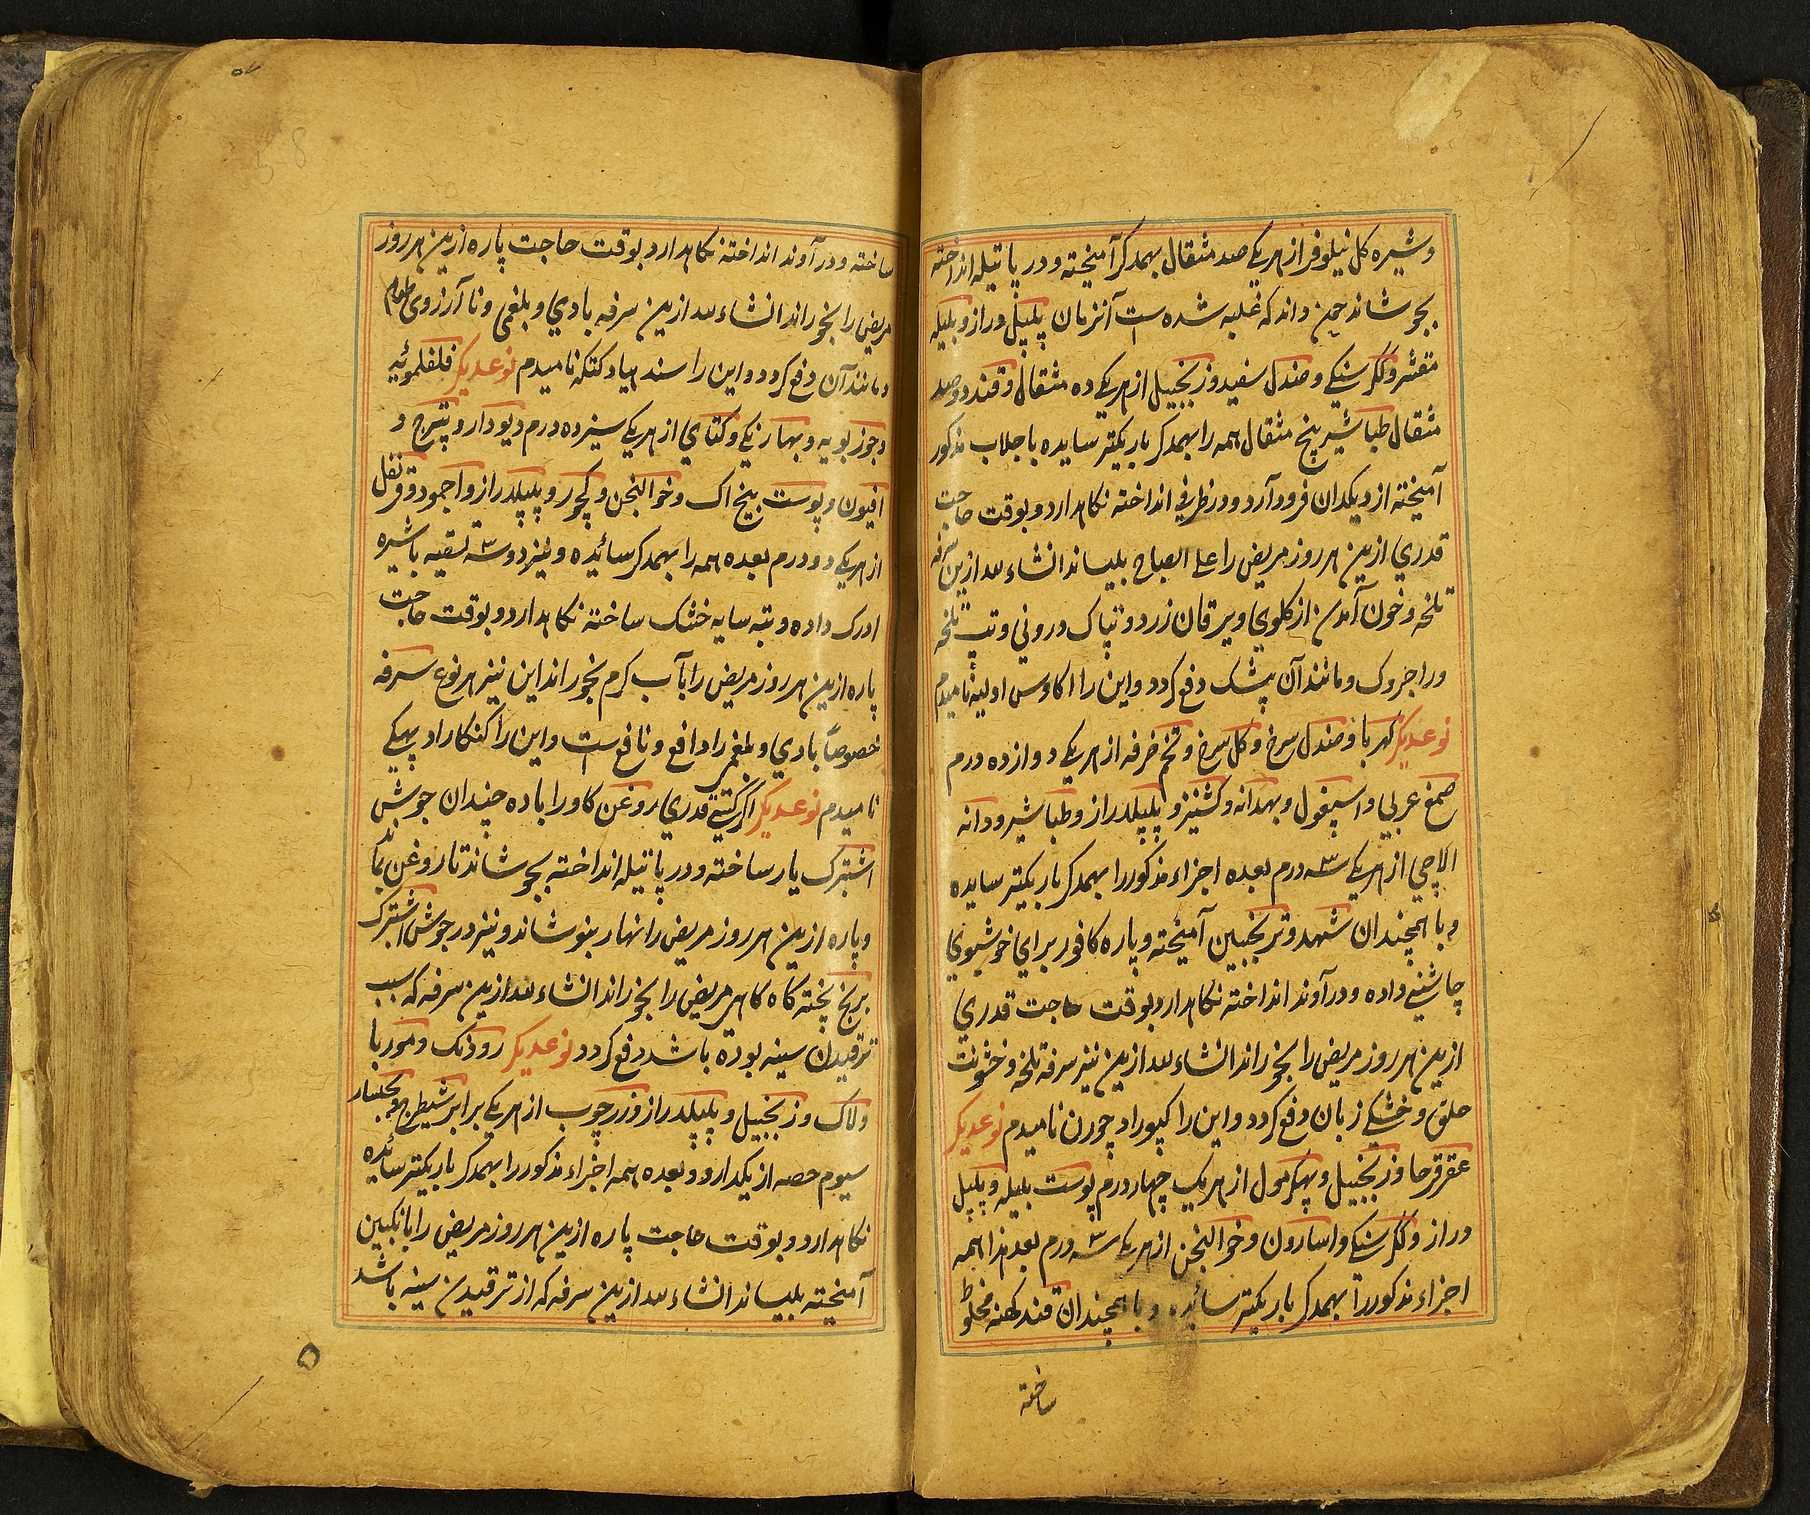 وشیره کل نیلوفر از هریکی صد مثقال بهمدکر آمیخته و در پاتیله انداخته
بجوشاند چون داند که غلبه شده است آنزمان پلپل دراز و بلیله
مقشر و ککر سنکی و صندل سفید و زنجبیل از هریکی ده مثقال و قند دو صد
مثقال طباشیر پنج مثقال همه را بهمدکر باریکتر سایده با جلاب مذکور
آمیخته از دیکدان فرود آرد و در ظرفی انداخته نکاهدارد و بوقت حاجت
قدری ازین هر روز مریض را علی الصباح بلیساند انشاءالله ازین سرفه
تلخه و خون آمدن از کلوی و یرقان زرد و تپاک درونی و تپ تلخه
و راجروک و مانند آن بیشک دفع کردد و این را اکاوس اولیه نامیدم
نوعدیکر کهربا و صندل سرخ و کل سرخ و تخم خرفه از هریکی دوازده درم
صمغ عربی و اسپغول و بهدانه و کشنیز و پلپلدراز و طباشیر و دانه
الاچی از هریکی سه درم بعده اجزاء مذکور را بهمدکر باریکتر سایده
و با همچندان شهد و ترنجبین آمیخته و پاره کافور برای خوشبوی
چاشنی داده و در آوند انداخته نکاهدارد بوقت حاجت قدری
ازین هر روز مریض را بخوراند انشاءالله ازین نیز سرفه تلخه و خشونت
حلق و خشکی زبان دفع کردد و این را کپوراد چورن نامیدم نوعدیکر
عقرقرحا و زنجبیل و پهکرمول از هریک چهار درم پوست بلیله و پلپل
دراز و ککر سنکی و اسارون و خوالنجن از هریکی سه درم بعد هذا همه
اجزاء مذکور را بهمدکر باریکتر سائیده و با همچندان قند کهنه مخلوط
ساخته
ساخته و در آوند انداخته نکاهدارد بوقت حاجت پاره ازین هر روز
مریض را بخوراند انشاءالله ازین سرفه بادی و بلغمی و نا آرزوی طعام
و مانند آن دفع کردد و این را سندهیاد کتکه نامیدم نوعدیکر فلفلموئیه
و جوزبویه و بهارنکی و کتای از هریکی سیزده درم دیودار و پترج و
افیون و پوست بیخ اک و خوالنجن و کچور و پلپلدراز و اجمود و قرنفل
از هریکی دو درم بعده همه را بهمدکر سائیده و نیز دو سه تسقیه باشیره
ادرک داده و بته سایه خشک ساخته نکاهدارد و بوقت حاجت
پاره ازین هر روز مریض را بآب کرم بخوراند این نیز هر نوع سرفه
خصوصاً بادی و بلغمی را دافع و نافع ست و این را کنکاراد پهکی
نامیدم نوعدیکر قدری روغن کاو را با ده چندان جوش
اشترک یار ساخته و در پاتیله انداخته بجوشاند تا روغن بماند
و پاره ازین هر روز مریض را نهار بنوشاند و نیز در جوش اشترک
برنج پخته کاه کاهی مریض را بخوراند انشاءالله ازین سرفه که سبب
ترقیدن سینه بوده باشد دفع کردد نوعدیکر روذنک و مورپا
ولاک و زنجبیل و پلپلدراز و زرچوب از هریکی برابر شیطرج
سیوم حصه از یکدارو و بعده همه اجزاء مذکور را بهمدکر باریکتر سائیده
نکاهدارد و بوقت حاجت پاره ازین هر روز مریض را بانکبین
آمیخته بلیساند انشاءالله ازین سرفه که از ترقیدن سینه باشد